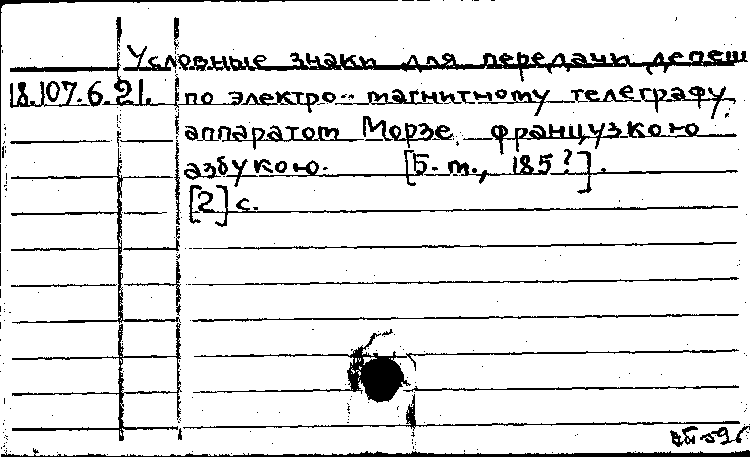 Условные знаки для передачи депеш
18.107.6.21. по электро-магнитному телеграфу
аппаратом Морзе французкою
азбукою. [Б. м., 185?].
[2] с.